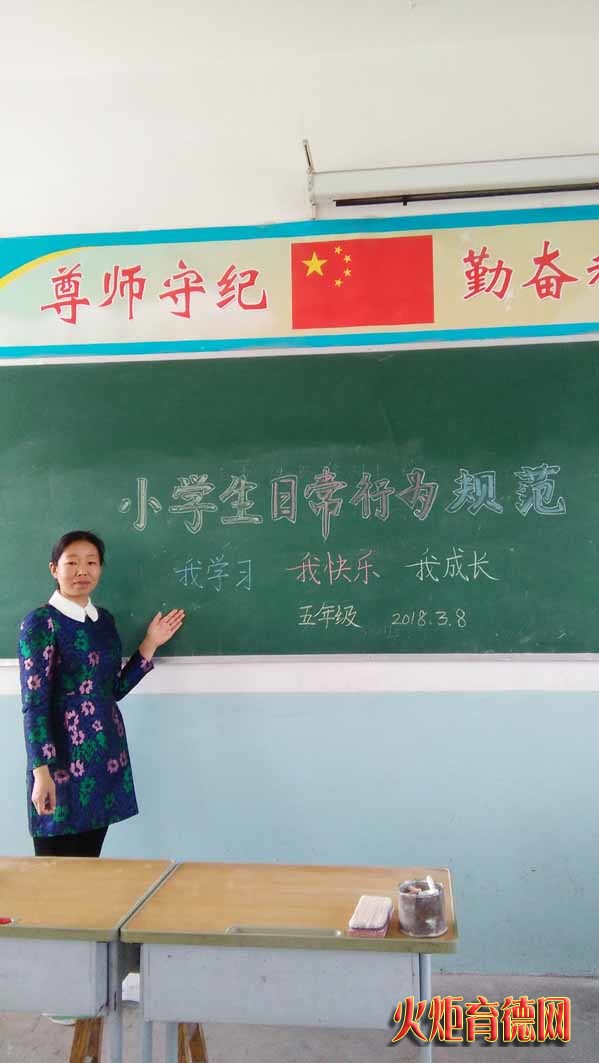 尊师守纪 勤奋
小学生日常行为规范
我学习 我快乐 我成长
五年级 2018.3.8
火炬育德网